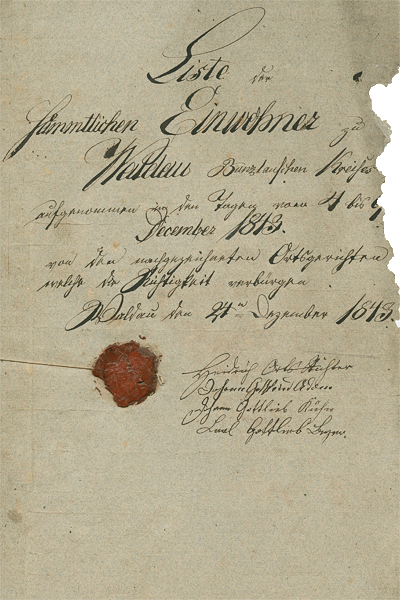 Liste der
sämmtlichen Einwohner zu
Waldau Bunzlauschen Kreises
aufgenommen in den Tagen vom 4 bis
December 1843.
von den nachgezeichneten Ortsgerichten
welche die Richtigkeit verbürgen.
Waldau den 24n Dezember 1843.
Heidrich Orts Richter
Johann Gottlieb Kühn
Gottlieb